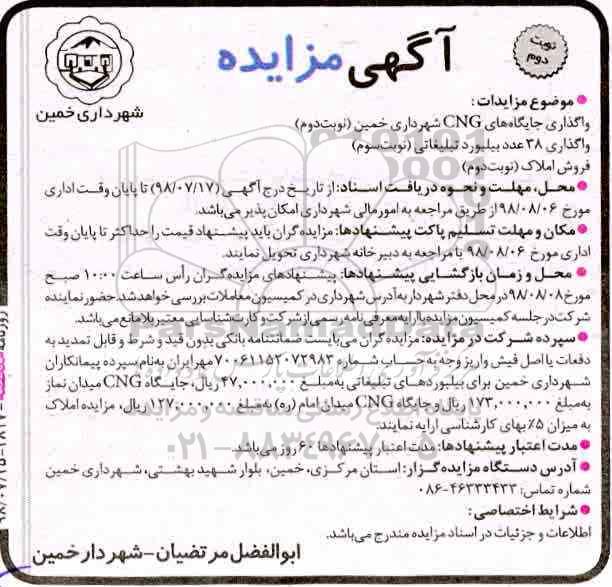 آگهی مزایده
نوبت
دوم
شهرداری خمین
موضوع مزایدات:
واگذاری جایگاه‌های CNG شهرداری خمین (نوبت‌دوم)
واگذاری ۳۸ عدد بیلبورد تبلیغاتی (نوبت‌سوم)
فروش املاک (نوبت‌دوم)
محل، مهلت و نحوه دریافت اسناد: از تاریخ درج آگهی (۹۸/۰۷/۱۷) تا پایان وقت اداری
مورخ ۹۸/۰۸/۰۶ از طریق مراجعه به امور مالی شهرداری امکان پذیر می‌باشد.
مکان و مهلت تسلیم پاکت پیشنهادها: مزایده گران باید پیشنهاد قیمت را حداکثر تا پایان وقت
اداری مورخ ۹۸/۰۸/۰۶ با مراجعه به دبیر خانه شهرداری تحویل نمایند.
محل و زمان بازگشایی پیشنهادها: پیشنهادهای مزایده‌گران رأس ساعت ۱۰:۰۰ صبح
مورخ ۹۸/۰۸/۰۸ در محل دفتر شهردار به آدرس شهرداری در کمیسیون معاملات بررسی خواهد شد. حضور نماینده
شرکت در جلسه کمیسیون مزایده با ارایه معرفی نامه رسمی از شرکت و کارت شناسایی معتبر بلامانع می‌باشد.
سپرده شرکت در مزایده: مزایده گران می‌بایست ضمانتنامه بانکی بدون قید و شرط و قابل تمدید به
دفعات یا اصل فیش واریز وجه به حساب شماره ۷۰۰۶۱۱۵۲۰۷۲۹۸۳ مهر ایران به نام سپرده پیمانکاران
شهرداری خمین برای بیلبوردهای تبلیغاتی به مبلغ ۴۷,۰۰۰,۰۰۰ ریال، جایگاه CNG میدان نماز
به مبلغ ۱۷۳,۰۰۰,۰۰۰ ریال و جایگاه CNG میدان امام (ره) به مبلغ ۱۲۷,۰۰۰,۰۰۰ ریال، مزایده املاک
به میزان ۵٪ بهای کارشناسی ارایه نمایند.
مدت اعتبار پیشنهادها: مدت اعتبار پیشنهادها ۶۰ روز می‌باشد.
آدرس دستگاه مزایده گزار: استان مرکزی، خمین، بلوار شهید بهشتی، شهرداری خمین
شماره تماس: ۴۶۳۳۳۴۳۳-۰۸۶
شرایط اختصاصی:
اطلاعات و جزئیات در اسناد مزایده مندرج می‌باشد.
ابوالفضل مرتضیان-شهردار خمین
ParsNamadData
۰۲۱-۸۸۳۴۹۶۷۰-۵